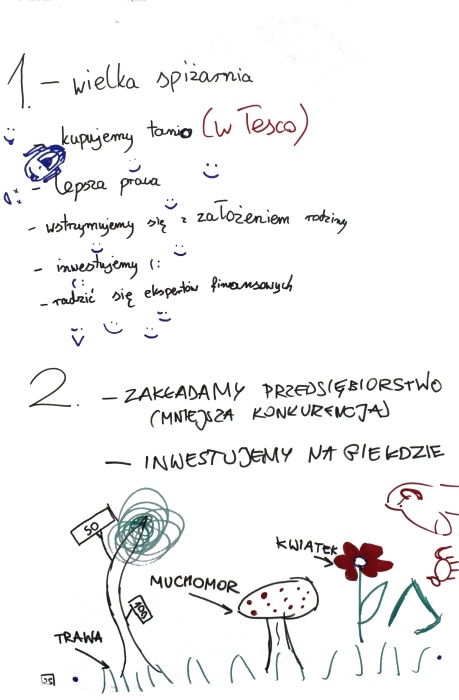 1. - wielka spiżarnia
kupujemy tanio (w Tesco)
- lepsza praca
- wstrzymujemy się z założeniem rodziny
- inwestujemy (:
- radzić się ekspertów finansowych
2. - ZAKŁADAMY PRZEDSIĘBIORSTWO
(MNIEJSZA KONKURENCJA)
- INWESTUJEMY NA GIEŁDZIE
50
KWIATEK
MUCHOMOR
100
TRAWA